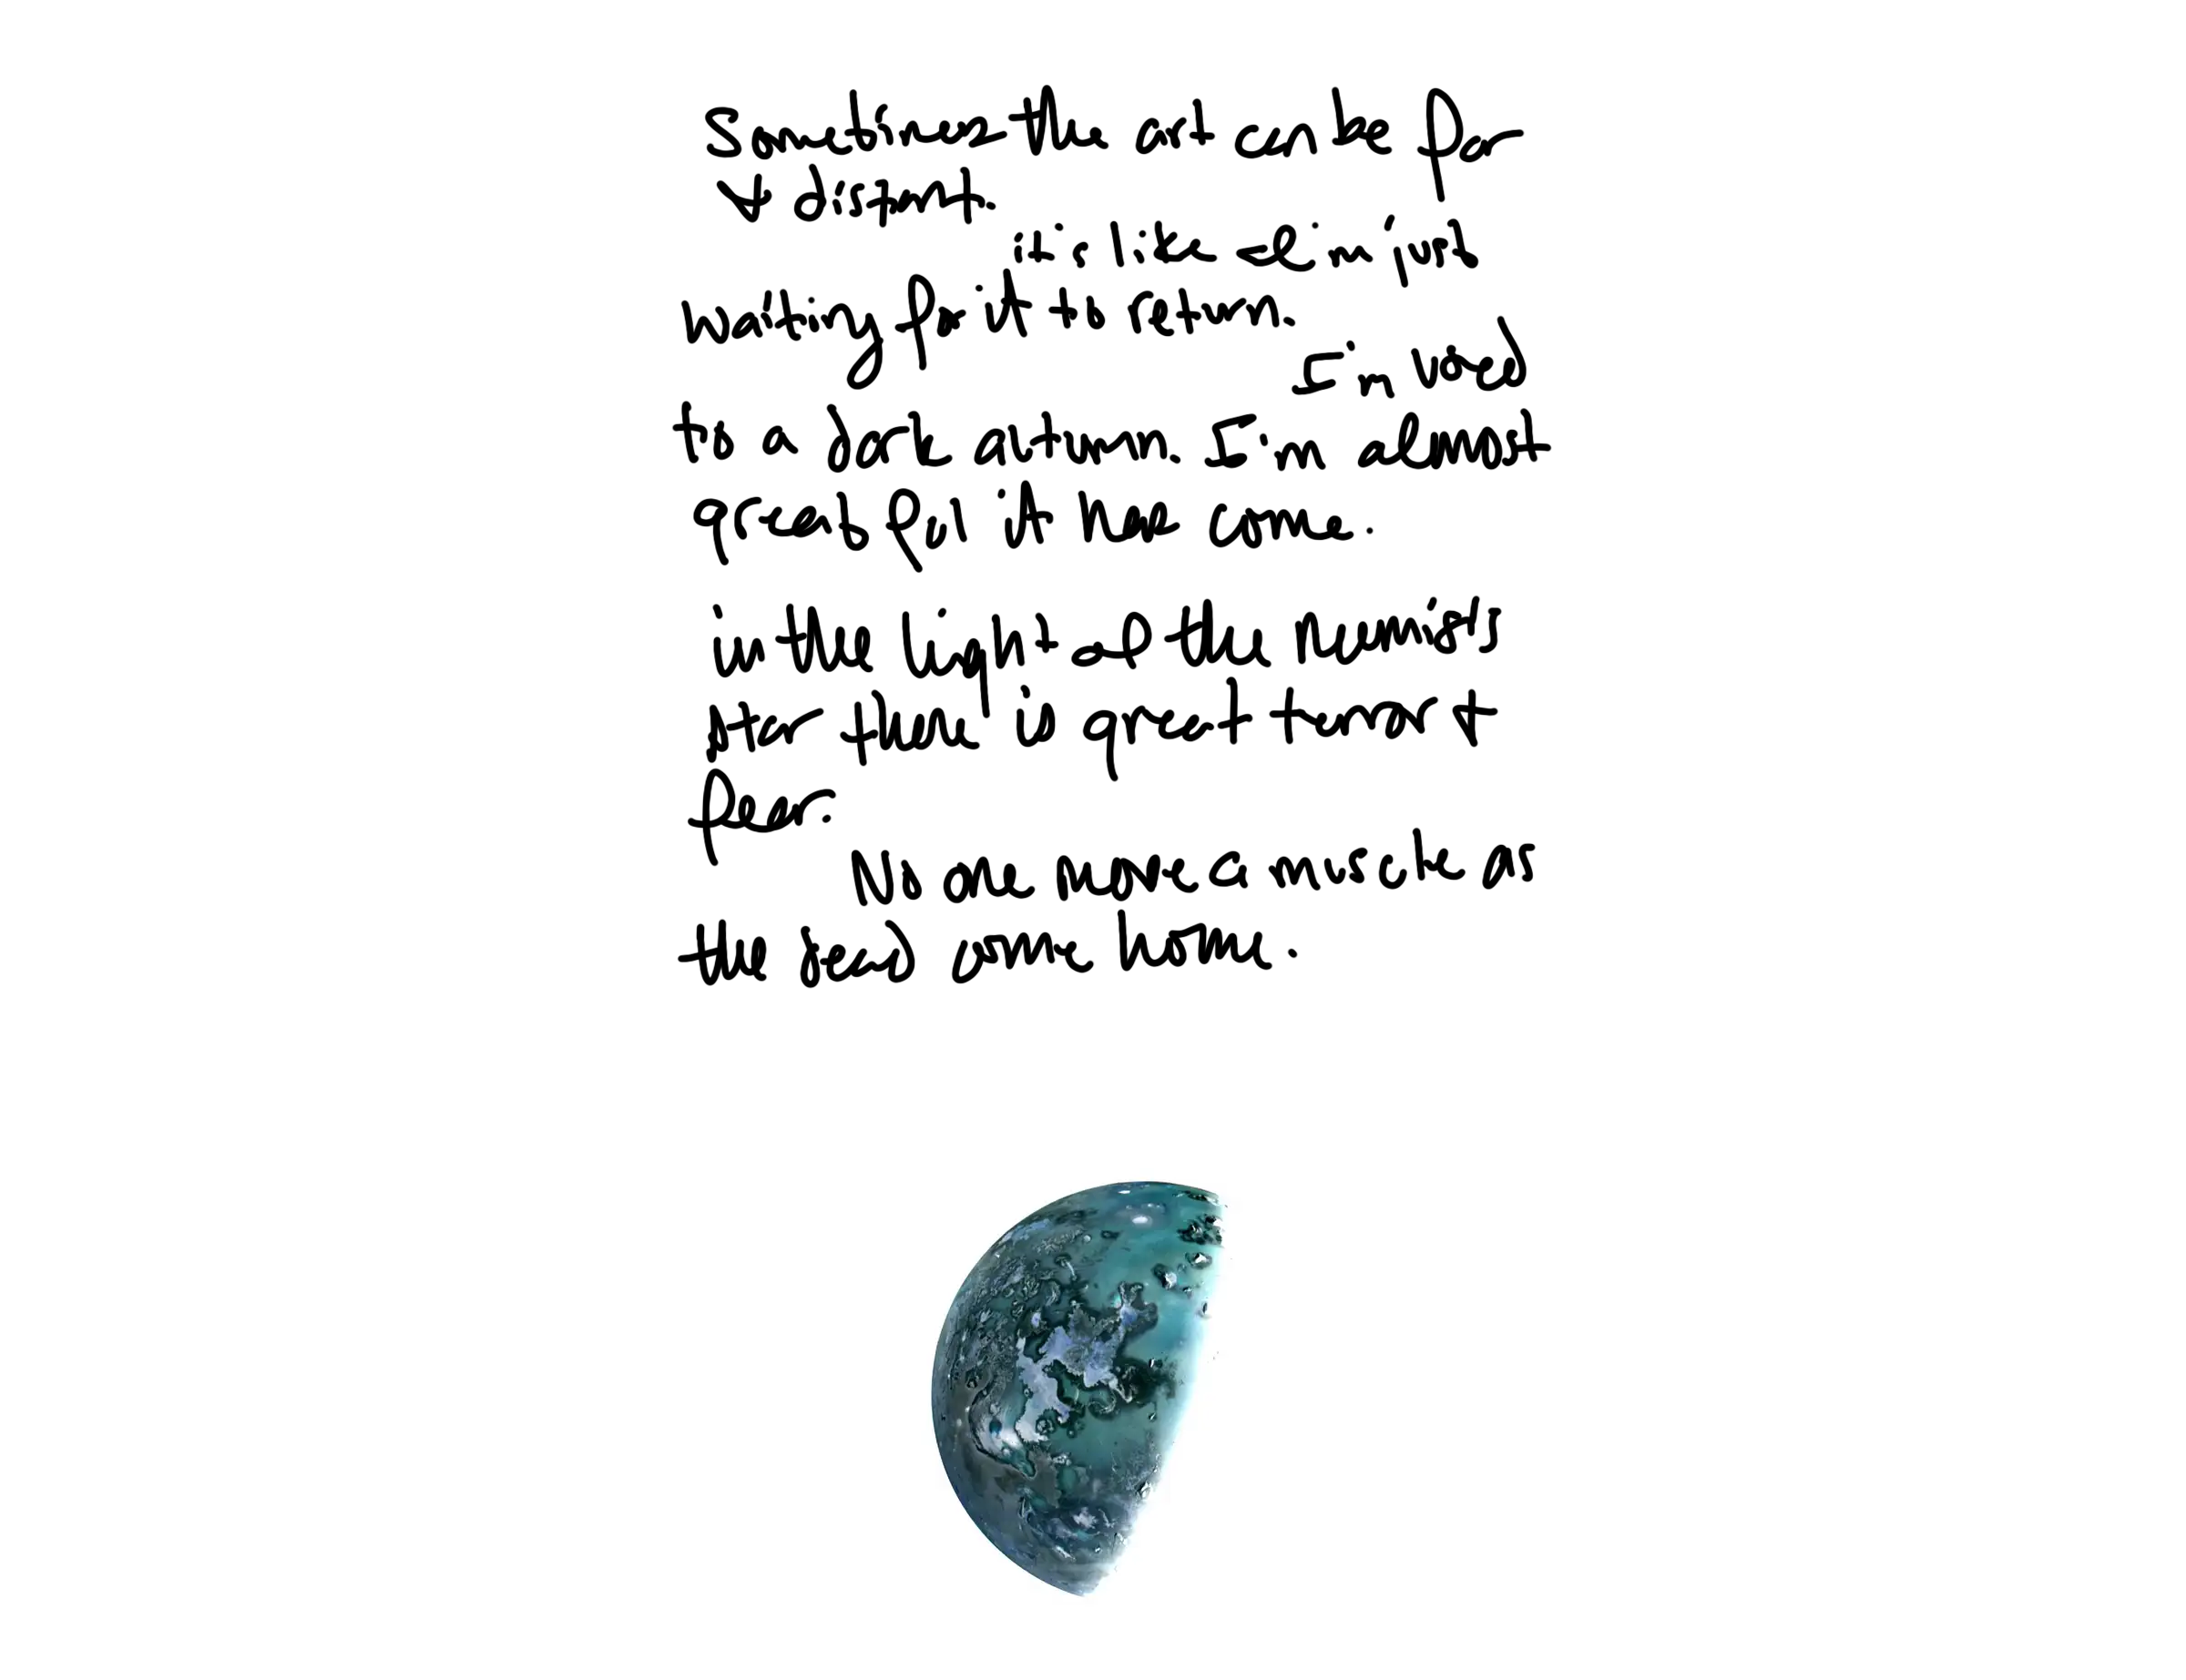 Sometimes the art can be far
& distant.
it's like I'm just
waiting for it to return.
I'm used
to a dark autumn. I'm almost
greatful it has come.
in the light of the
star there is great terror &
fear.
No one move a muscle as
the dead come home.